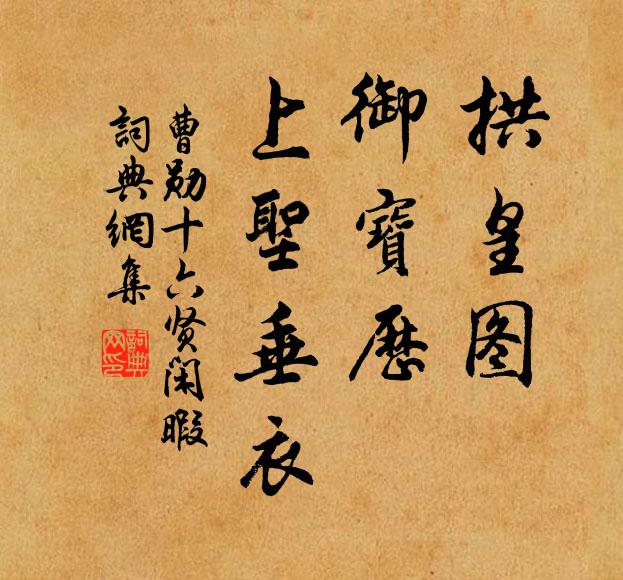 拱皇图
御寶歷
上聖垂衣
曹勋十六贤閑暇
詞典網集
詞典
网印